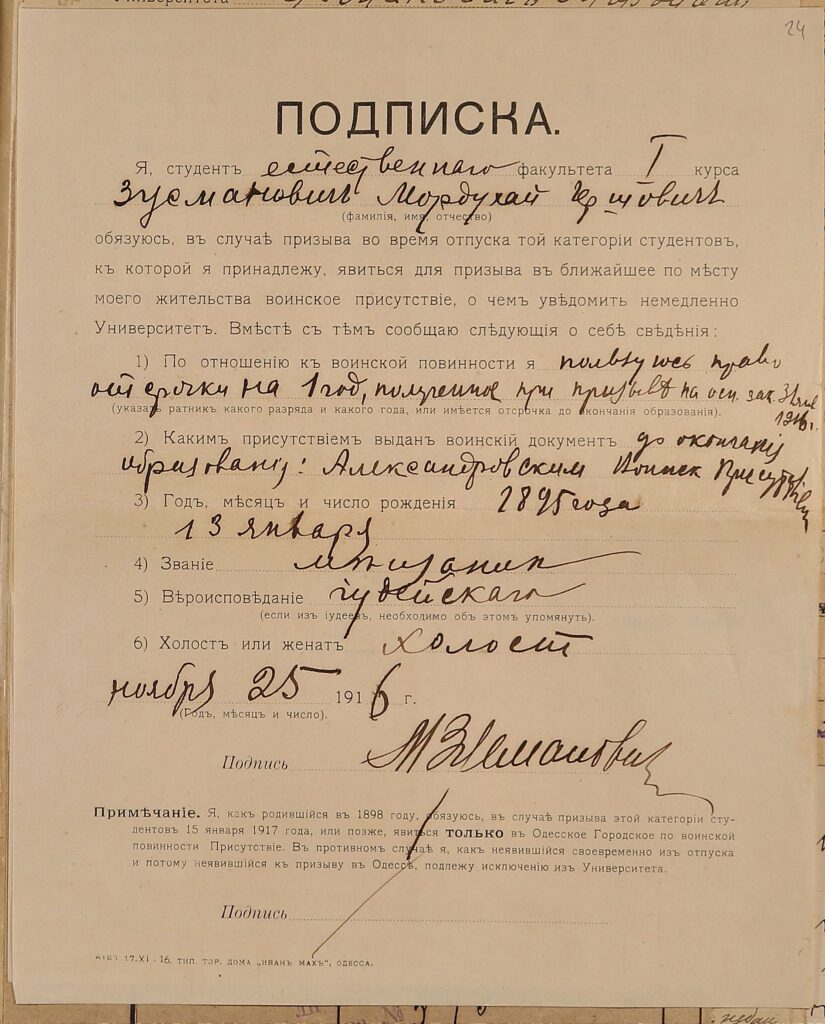 Университета
24
ПОДПИСКА.
Я, студентъ естественнаго факультета I курса
Зусмановичъ Мордухай
(фамилія, имя, отчество)
обязуюсь, въ случаѣ призыва во время отпуска той категоріи студентовъ,
къ которой я принадлежу, явиться для призыва въ ближайшее по мѣсту
моего жительства воинское присутствіе, о чемъ увѣдомить немедленно
Университетъ. Вмѣстѣ съ тѣмъ сообщаю слѣдующія о себѣ свѣдѣнія:
1) По отношенію къ воинской повинности я пользуюсь право
отсрочки на 1 год, полученное при призывѣ на осн. зак. 31
1916 г.
(указать ратникъ какого разряда и какого года, или имѣется отсрочка до окончанія образованія).
2) Какимъ присутствіемъ выданъ воинскій документъ до окончанія
образованія: Александровским Воинск Присутствіем
3) Годъ, мѣсяцъ и число рожденія 1895 года
13 января
4) Званіе мѣщанин
5) Вѣроисповѣданіе іудейскаго
(если изъ іудеевъ, необходимо объ этомъ упомянуть).
6) Холостъ или женатъ холост
ноября 25 1916 г.
(Годъ, мѣсяцъ и число).
Подпись МЗусманович
Примѣчаніе. Я, какъ родившійся въ 1898 году, обязуюсь, въ случаѣ призыва этой категоріи сту-
дентовъ 15 января 1917 года, или позже, явиться только въ Одесское Городское по воинской
повинности Присутствіе. Въ противномъ случаѣ я, какъ неявившійся своевременно изъ отпуска
и потому неявившійся къ призыву въ Одессѣ, подлежу исключенію изъ Университета.
Подпись
17-XI-16. ТИП. ТОР. ДОМА „ИВАНЪ МАХЪ", ОДЕССА.